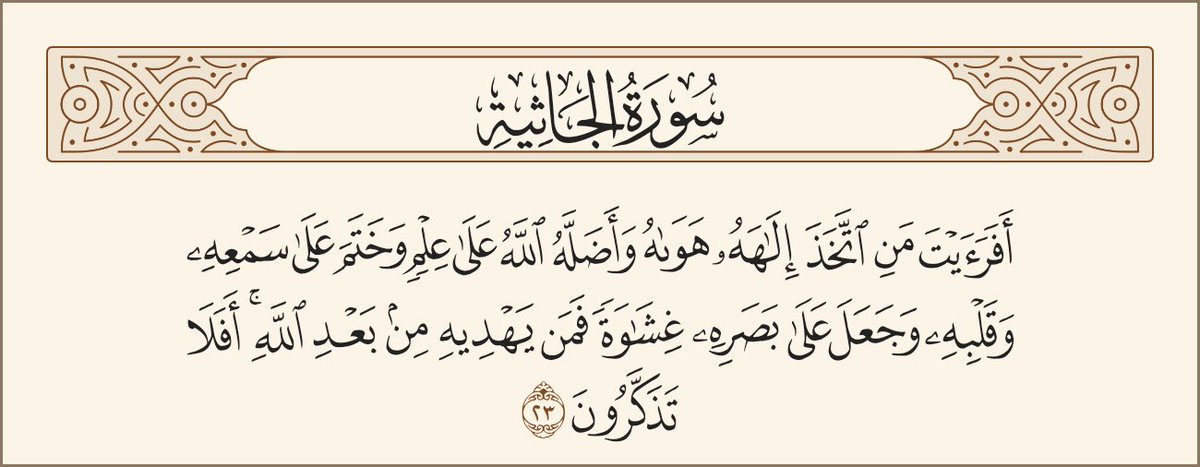 سُورَةُ الجَاثِيَةِ
أَفَرَءَيْتَ مَنِ ٱتَّخَذَ إِلَٰهَهُۥ هَوَىٰهُ وَأَضَلَّهُ ٱللَّهُ عَلَىٰ عِلْمٍۢ وَخَتَمَ عَلَىٰ سَمْعِهِۦ
وَقَلْبِهِۦ وَجَعَلَ عَلَىٰ بَصَرِهِۦ غِشَٰوَةًۭ فَمَن يَهْدِيهِ مِنۢ بَعْدِ ٱللَّهِ ۚ أَفَلَا
تَذَكَّرُونَ ٢٣